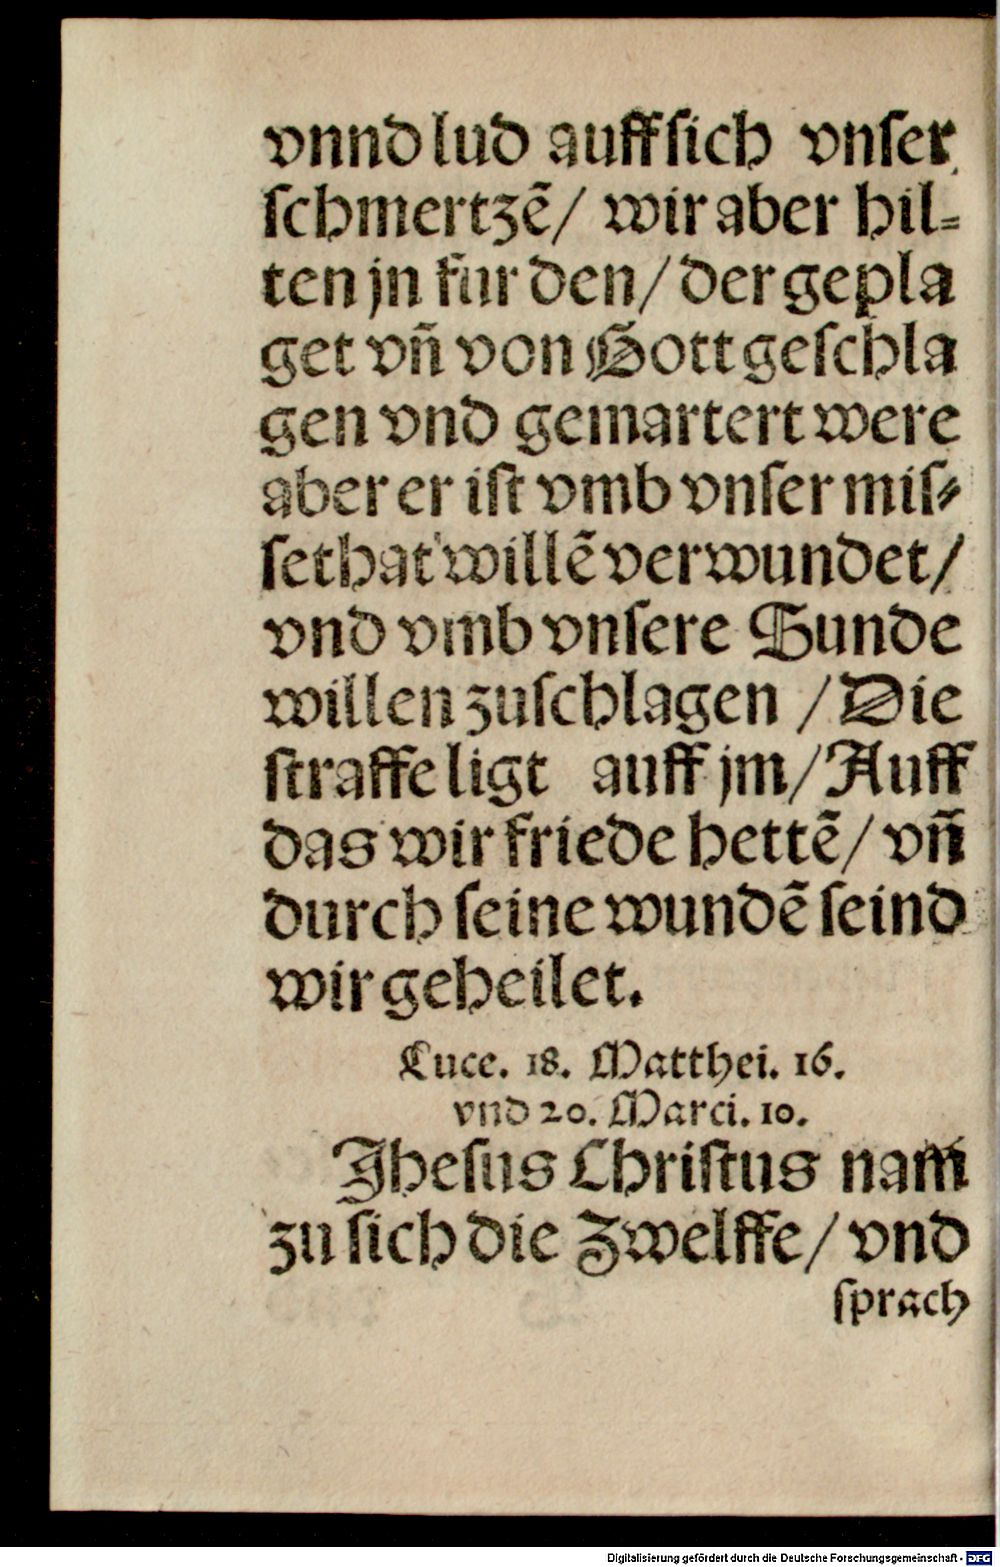 vnnd lud auff sich vnser
ſchmertzẽ/ wir aber hil-
ten jn fur den/ der gepla
get vñ von Gott geſchla
gen vnd gemartert were
aber er iſt vmb vnſer miſ-
ſethat willẽ verwundet/
vnd vmb vnſere Sunde
willen zuſchlagen / Die
ſtraffe ligt auff jm/ Auff
das wir friede hettẽ/ vñ
durch ſeine wundẽ ſeind
wir geheilet.
Luce. 18. Matthei. 16.
vnd 20. Marci. 10.
Jheſus Chriſtus nam
zu ſich die Zwelffe/ vnd
ſprach
Digitalisierung gefördert durch die Deutsche Forschungsgemeinschaft - DFG